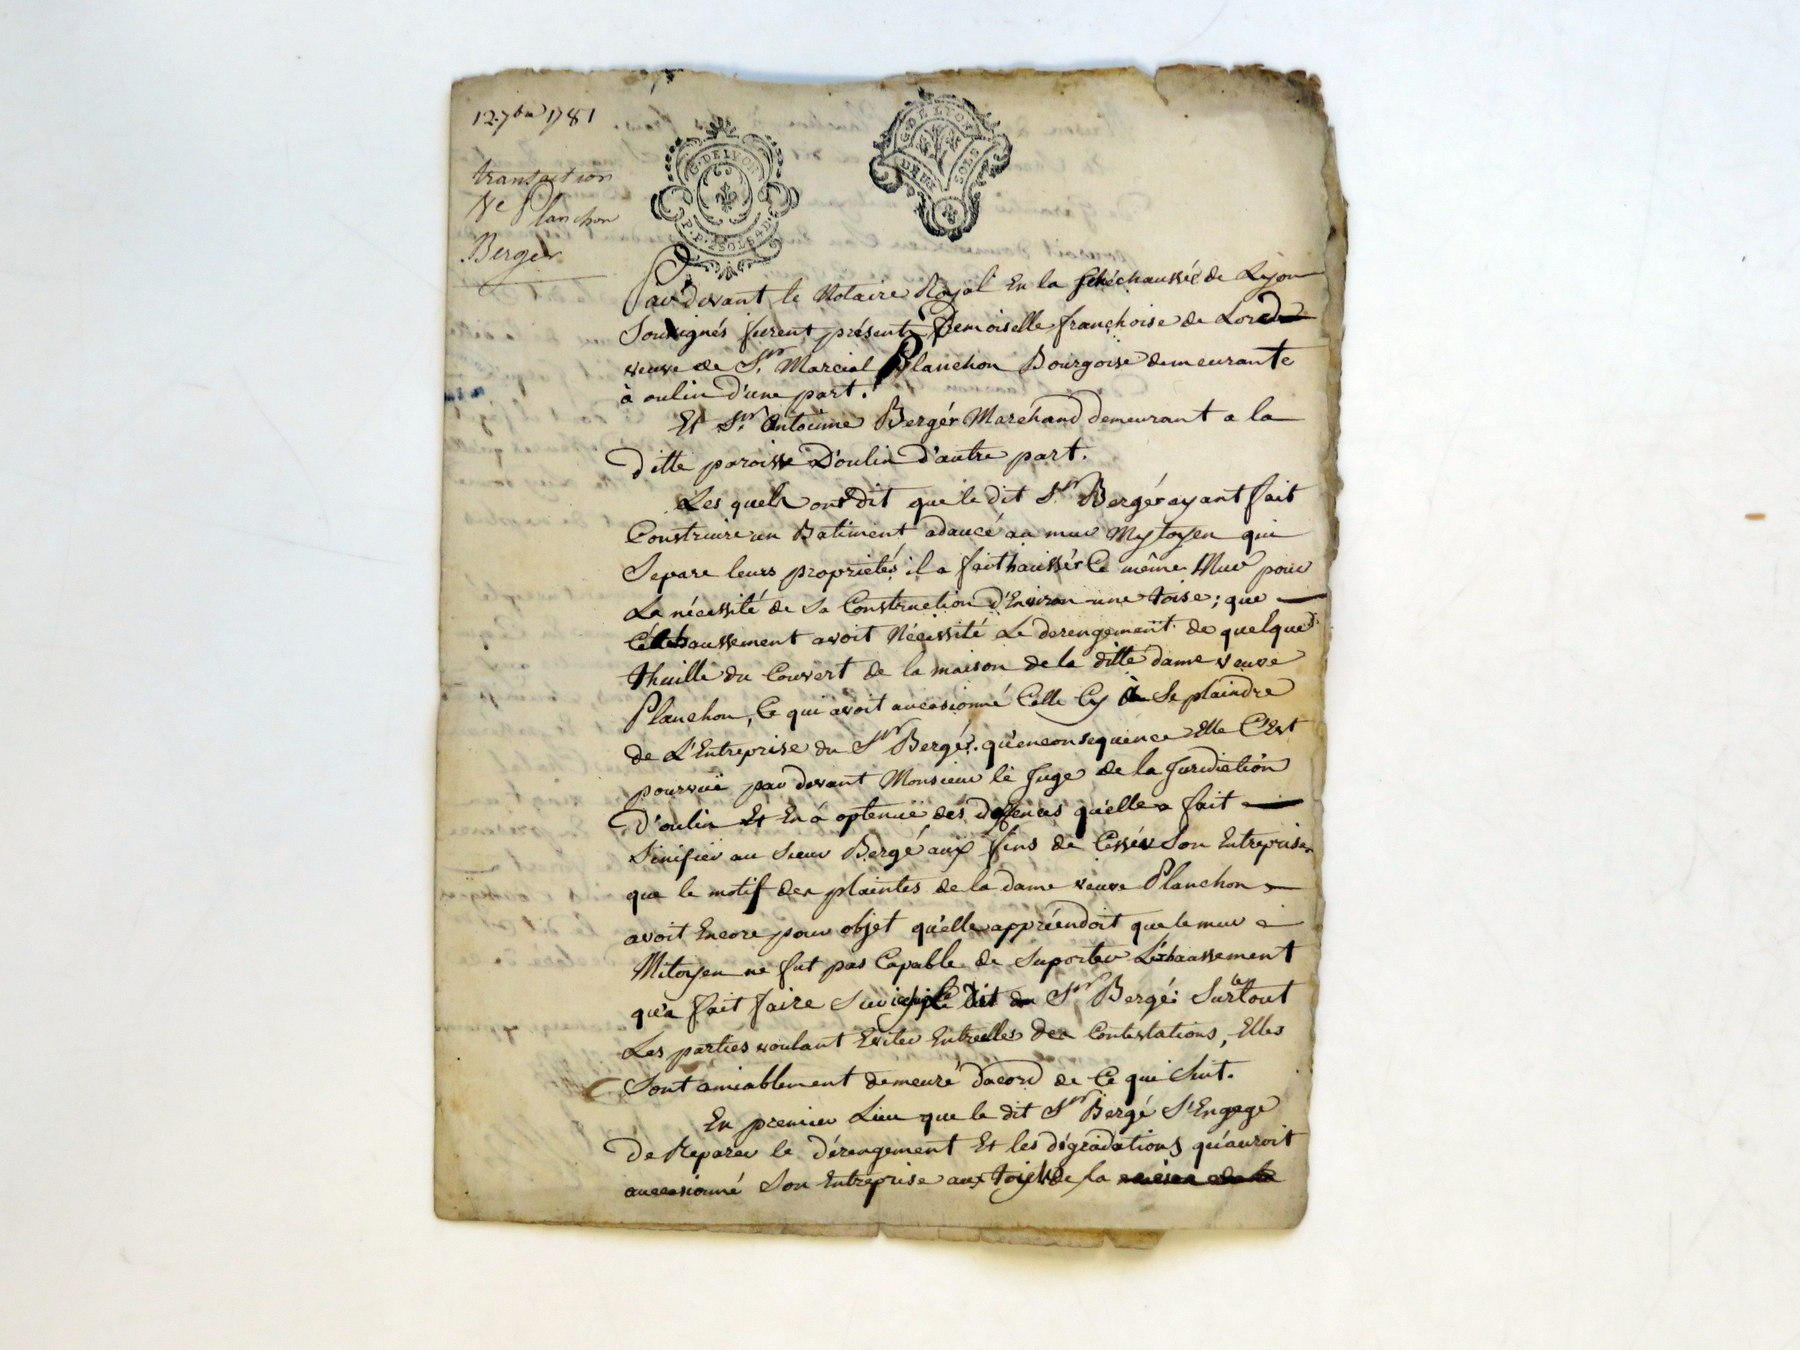 12 7bre 1781
transaction
Ve Planchon
Berger
G. DE LYON
P. P. 2 SOLS 4 D.
G. DE LYON
DEUX SOLS
Par devant le Notaire Royal En la Sénéchaussée de Lyon
Soussignés furent présents Demoiselle françhoise de Lorde
veuve de Sr. Marcial Planchon Bourgoise demeurante
à oulin d'une part.
Et Sr. Antoinne Bergér Marchand demeurant a la
ditte paroisse D'oulin d'autre part.
Les quels ont dit que le dit Sr Bergér ayant fait
Construire un Batiment adaucé au mur Mytoyen qui
Separe leurs proprietés il a fait haussér Ce même Mur pour
La nécessité de Sa Construction d'Environ une toise; que
Cét Exhaussement avoit Nécessité Le derengement de quelque
thuille du Couvert de la maison de la ditte dame veuve
Planchon, Ce qui avoit auccasionné Celle Cy à Se plaindre
de L'Entreprise du Sr Bergé. qu'en consequence Elle C'Est
pourvuë par devant Monsieur le Juge de la Juridiction
D'oulin Et En à optenuë des deffences qu'elle a fait
Sinifier au Sieur Bergé aux fins de Cessér Son Entreprise
que le motif des plaintes de la dame veuve Planchon
avoit Encore pour objet qu'elle appréendoit que le mur
Mitoyen ne fut pas Capable de Suporter L'Exhaussement
qu'a fait faire Sur icelui le dit Sr Bergé. Sur le tout
Les parties voulant Eviter Entrelles des Contestations, Elles
Sont amiablement demeuré dacord de Ce qui Suit.
En premier Lieu que le dit Sr Bergé S'Engage
De Reparer le dérengement Et les dégradations qu'auroit
auccasionné Son Entreprise aux toits de la